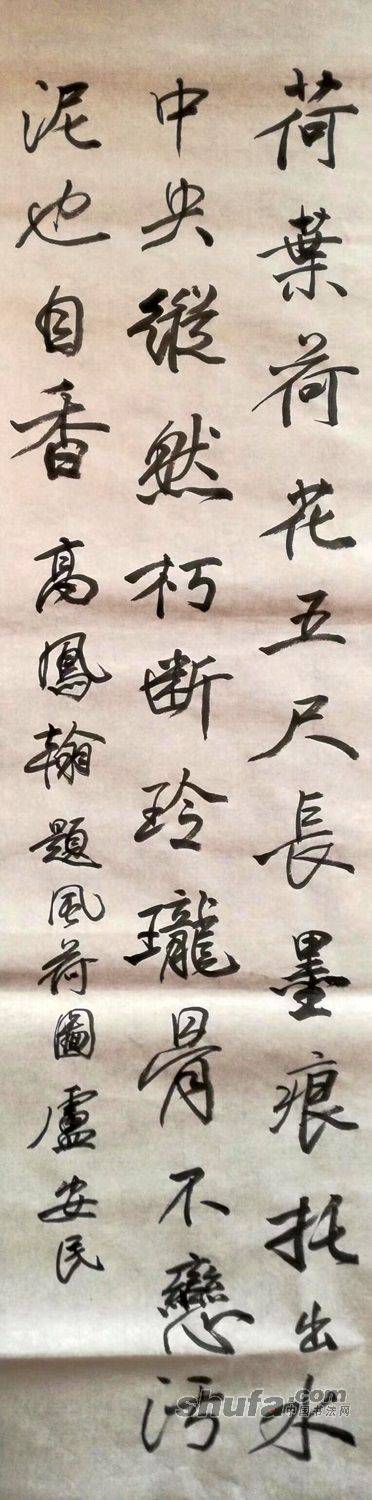 荷葉荷花五尺長墨痕托出水
中央縱然朽斷玲瓏骨不戀污
泥也自香 高鳳翰題風荷圖盧安民
shufa.com
中国书法网